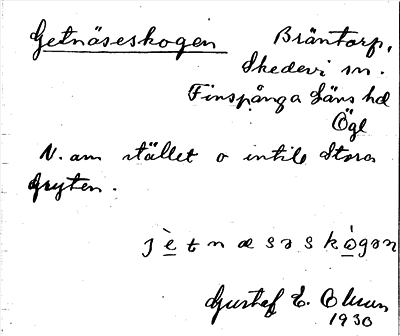 Getnäseskogen Bräntorp,
Skedevi sn.
Finspånga Läns hd
Ögl
N. om stället o intill Stora
Gryten.
jètnæsəskògən
Gustaf E.
1930